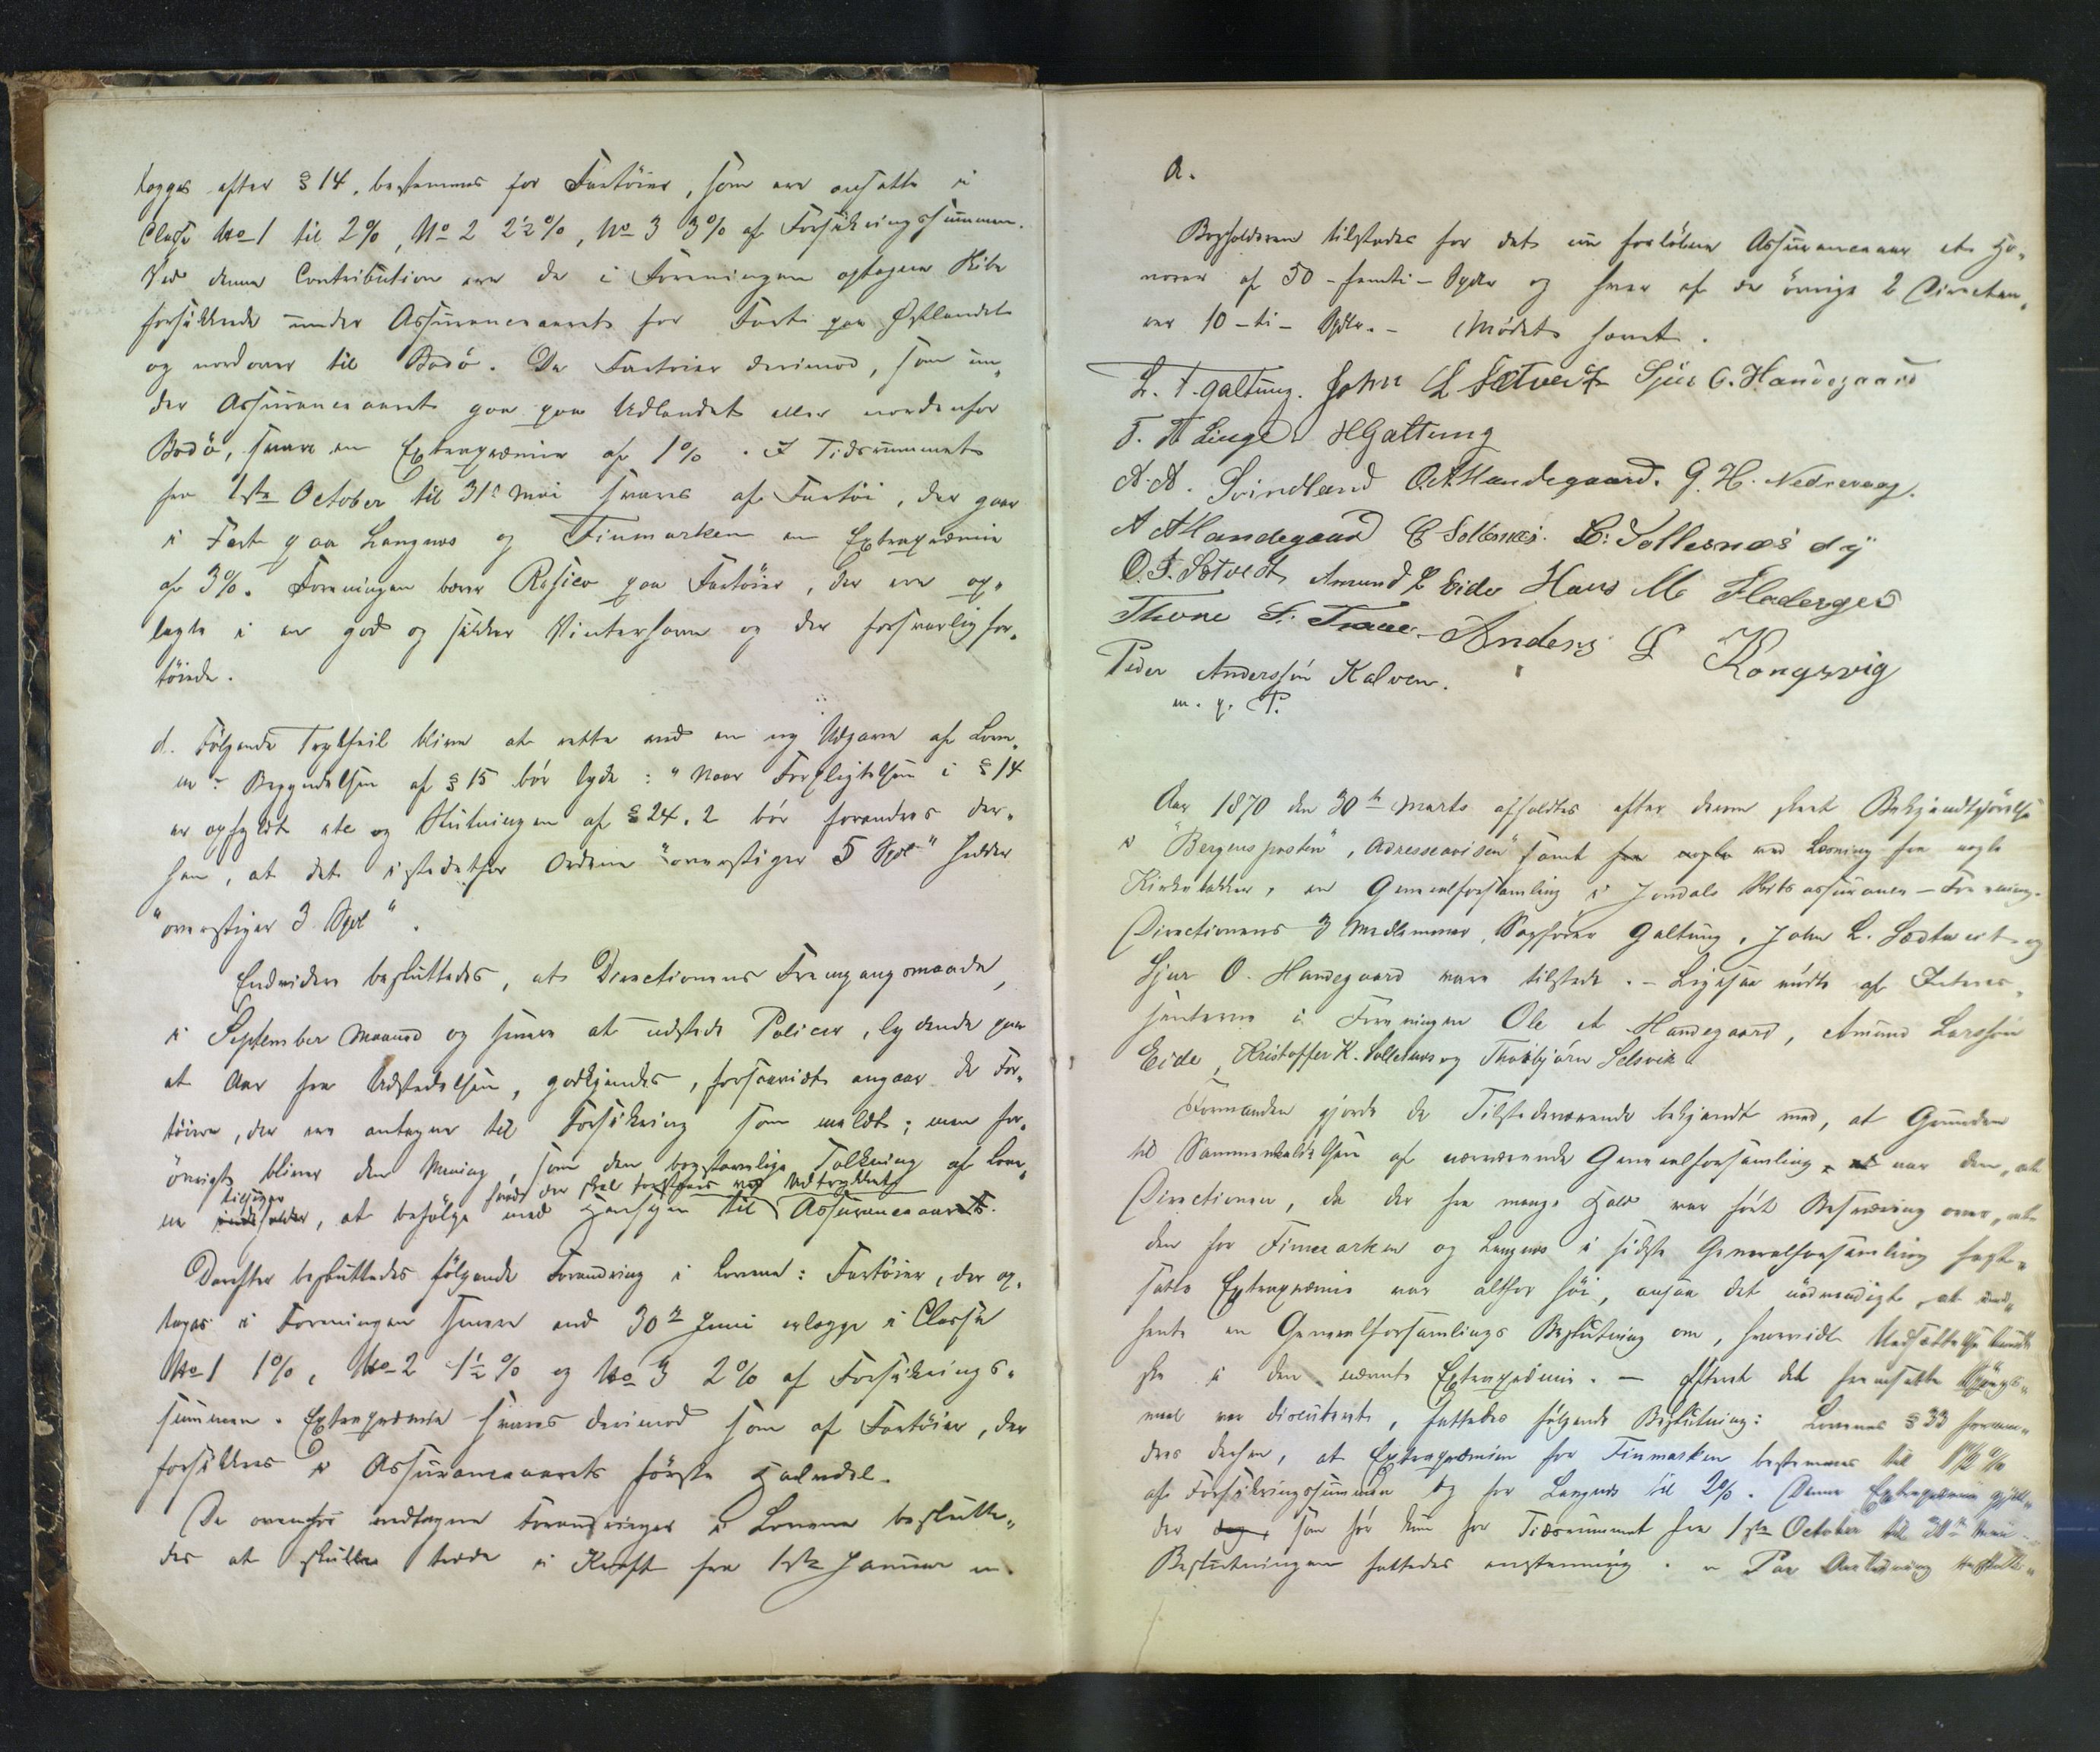 lægges efter § 14, bestemmes for Fartöier, som ere ansatte i
Classe No 1 til 2%, No 2 2½%, No 3 3% af Forsikringssummen.
Ved denne Contribution ere de i Foreningen optagne Skibe
forsikkrede under Assuranceaaret for Fart paa Østlandet
og nordover til Bodö. De Fartöier derimod, som un„
der Assuranceaaret gaa paa Udlandet eller nordenfor
Bodö, svare en Extrapræmie af 1%. I Tidsrummet
fra 1ste October til 31te Mai svares af Fartöi, der gaar
i Fart paa Langnes og Finmarken en Extrapræmie
af 3%. Foreningen bærer Risico paa Fartöier, der ere op„
lagte i en god og sikker Vinterhavn og der forsvarlig for„
töiede.
d. Fölgende Trykfeil bliver at rette ved en ny Udgave af Love„
ne: Begyndelsen af § 15 bör lyde: "Naar Forpligtelsen i § 14
er opfyldt etc og Slutningen af § 24, 2 bör forandres der„
hen, at det istedetfor Ordene "overstiger 5 Spd" hedder
"overstiger 3 Spd".
Endvidere besluttedes, at Directionens Fremgangsmaade,
i September Maaned og senere at udstede Policer, lydende paa
et Aar fra Udstedelsen, godkjendes, forsaavidt angaar de Far„
töier, der ere antagne til Forsikring som meldt; men for„
övrigt bliver den Mening, som den bogstavelige Tolkning af Love„
tilsiger hvad der skal forstaaes ved Udtrykket
ne indholder, at befölge med Hensyn til Assuranceaaret.
Derefter besluttedes fölgende Forandring i Lovene: Fartöier, der op„
tages i Foreningen senere end 30te Juni erlægge i Classe
No 1 1%, No 2 1½% og No 3 2% af Forsikrings„
summen. Extrapræmie svares derimod som af Fartöier, der
forsikkres i Assuranceaarets förste Halvdel.
De ovenfor vedtagne Forandringer i Lovene beslutte„
des at skulle træde i Kraft fra 1ste Januar
a.
Bogholderen tilstodes for det nu forløbne Assuranceaar et Ho„
norar af 50 - femti - Spdlr og hver af de övrige 2 Directeu„
rer 10 - ti - Spdlr. - Mödet hævet.
L. T. Galtung. John L Sætveit Sjur O. Handegaard
T. T. Linge HGaltung
A. A. Svindland O. A. Handegaard. G. H. Nedrevaag.
A A Handegaard C Sollesnæs. C. Sollesnæs d y
O. J. Sætvedt Amund L Eide Hans M.
Thore S. Anders L Kongsvig
Peder Anderssön Kalven.
m. p. P.
Aar 1870 den 30te Marts afholdtes efter derom skeet Bekjendtgjörelse
i "Bergensposten", Adresseavisen" samt fra nogle ved Læsning fra nogle
Kirkebakker, en Generalforsamling i Jondals Skibsassurance-Forening.
Directionens 3 Medlemmer, Sagförer Galtung, John L. Sædtveit og
Sjur O. Handegaard vare tilstede. - Ligesaa mödte af Interes„
senterne i Foreningen Ole A Handegaard, Amund Larssön
Eide, Kristoffer K. Sollesnæs og Thorbjörn Selsvik
Formanden gjorde de Tilstedeværende bekjendt med, at Grunden
til Sammenkaldelsen af nærværende Generalforsamling, at var den, at
Directionen, da der fra mange Hold var fört Besværing over, at
den for Finmarken og Langnes i sidste Generalforsamling fast„
satte Extrapræmie var altfor höi, ansaa det nödvendigt, at ind„
hente en Generalforsamlings Beslutning om, hvorvidt Nedsættelse burde
ske i den nævnte Extrapræmie. — Efterat det fremsatte Spörgs„
maal var discuteret, fattedes fölgende Beslutning: Lovenes § 33 foran„
dres derhen, at Extrapræmien for Finmarken bestemmes til 1½%
af Forsikringssummen og for Langnes til 2%. Denne Extrapræmie gjæl„
der dog, som för kun for Tidsrummet fra 1ste October til 31te Mai -
Beslutningen fattedes enstemmig. - Paa Anledning besluttet„